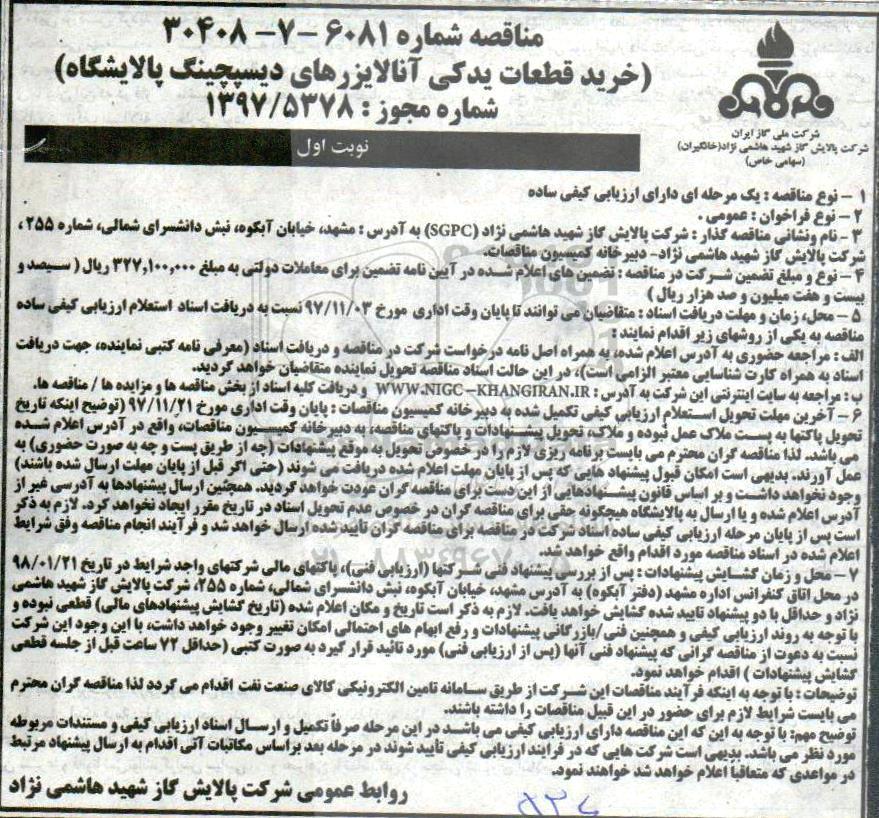 مناقصه شماره ۶۰۸۱ -۷- ۳۰۴۰۸
(خرید قطعات یدکی آنالایزرهای دیسپچینگ پالایشگاه)
شماره مجوز : ۱۳۹۷/۵۳۷۸
شرکت ملی گاز ایران
شرکت پالایش گاز شهید هاشمی نژاد(خانگیران)
(سهامی خاص)
نوبت اول
۱ – نوع مناقصه : یک مرحله ای دارای ارزیابی کیفی ساده
۲ – نوع فراخوان : عمومی .
۳ – نام ونشانی مناقصه گذار : شرکت پالایش گاز شهید هاشمی نژاد (SGPC) به آدرس : مشهد، خیابان آبکوه، نبش دانشسرای شمالی، شماره ۲۵۵ ،
شرکت پالایش گاز شهید هاشمی نژاد- دبیرخانه کمیسیون مناقصات.
۴ – نوع و مبلغ تضمین شرکت در مناقصه : تضمین های اعلام شده در آیین نامه تضمین برای معاملات دولتی به مبلغ ۳۲۷,۱۰۰,۰۰۰ ریال ( سیصد و
بیست و هفت میلیون و صد هزار ریال )
۵ – محل، زمان و مهلت دریافت اسناد : متقاضیان می توانند تا پایان وقت اداری مورخ ۹۷/۱۱/۰۳ نسبت به دریافت اسناد استعلام ارزیابی کیفی ساده
مناقصه به یکی از روشهای زیر اقدام نمایند :
الف : مراجعه حضوری به آدرس اعلام شده، به همراه اصل نامه درخواست شرکت در مناقصه و دریافت اسناد (معرفی نامه کتبی نماینده، جهت دریافت
اسناد به همراه کارت شناسایی معتبر الزامی است)، در این حالت اسناد مناقصه تحویل نماینده متقاضیان خواهد گردید.
ب : مراجعه به سایت اینترنتی این شرکت به آدرس : WWW.NIGC-KHANGIRAN.IR و دریافت کلیه اسناد از بخش مناقصه ها و مزایده ها / مناقصه ها.
۶ – آخرین مهلت تحویل استعلام ارزیابی کیفی تکمیل شده به دبیرخانه کمیسیون مناقصات : پایان وقت اداری مورخ ۹۷/۱۱/۲۱ (توضیح اینکه تاریخ
تحویل پاکتها به پست ملاک عمل نبوده و ملاک، تحویل پیشنهادات و پاکتهای مناقصه، به دبیرخانه کمیسیون مناقصات، واقع در آدرس اعلام شده
می باشد. لذا مناقصه گران محترم می بایست برنامه ریزی لازم را در خصوص تحویل به موقع پیشنهادات (چه از طریق پست و چه به صورت حضوری) به
عمل آورند. بدیهی است امکان قبول پیشنهاد هایی که پس از پایان مهلت اعلام شده دریافت می شوند (حتی اگر قبل از پایان مهلت ارسال شده باشند)
وجود نخواهد داشت و بر اساس قانون پیشنهادهایی از این دست برای مناقصه گران عودت خواهد گردید. همچنین ارسال پیشنهادها به آدرسی غیر از
آدرس اعلام شده و یا ارسال به پالایشگاه هیچگونه حقی برای مناقصه گران در خصوص عدم تحویل اسناد در تاریخ مقرر ایجاد نخواهد کرد. لازم به ذکر
است پس از پایان مرحله ارزیابی کیفی ساده اسناد شرکت در مناقصه برای مناقصه گران تایید شده ارسال خواهد شد و فرآیند انجام مناقصه وفق شرایط
اعلام شده در اسناد مناقصه مورد اقدام واقع خواهد شد.
۷ – محل و زمان گشایش پیشنهادات : پس از بررسی پیشنهاد فنی شرکتها (ارزیابی فنی)، پاکتهای مالی شرکتهای واجد شرایط در تاریخ ۹۸/۰۱/۲۱
در محل اتاق کنفرانس اداره مشهد (دفتر آبکوه) به آدرس مشهد، خیابان آبکوه، نبش دانشسرای شمالی، شماره ۲۵۵، شرکت پالایش گاز شهید هاشمی
نژاد و حداقل با دو پیشنهاد تایید شده گشایش خواهد یافت. لازم به ذکر است تاریخ و مکان اعلام شده (تاریخ گشایش پیشنهادهای مالی) قطعی نبوده و
با توجه به روند ارزیابی کیفی و همچنین فنی/بازرگانی پیشنهادات و رفع ابهام های احتمالی امکان تغییر وجود خواهد داشت، با این وجود این شرکت
نسبت به دعوت از مناقصه گرانی که پیشنهاد فنی آنها (پس از ارزیابی فنی) مورد تائید قرار گیرد به صورت کتبی (حداقل ۷۲ ساعت قبل از جلسه قطعی
گشایش پیشنهادات ) اقدام خواهد نمود.
توضیحات : با توجه به اینکه فرآیند مناقصات این شرکت از طریق سامانه تامین الکترونیکی کالای صنعت نفت اقدام می گردد لذا مناقصه گران محترم
می بایست شرایط لازم برای حضور در این قبیل مناقصات را داشته باشند.
توضیح مهم: با توجه به این که این مناقصه دارای ارزیابی کیفی می باشد در این مرحله صرفاً تکمیل و ارسال اسناد ارزیابی کیفی و مستندات مربوطه
مورد نظر می باشد. بدیهی است شرکت هایی که در فرایند ارزیابی کیفی تأیید شوند در مرحله بعد براساس مکاتبات آتی اقدام به ارسال پیشنهاد مرتبط
در مواعدی که متعاقباً اعلام خواهد شد خواهند نمود.
روابط عمومی شرکت پالایش گاز شهید هاشمی نژاد